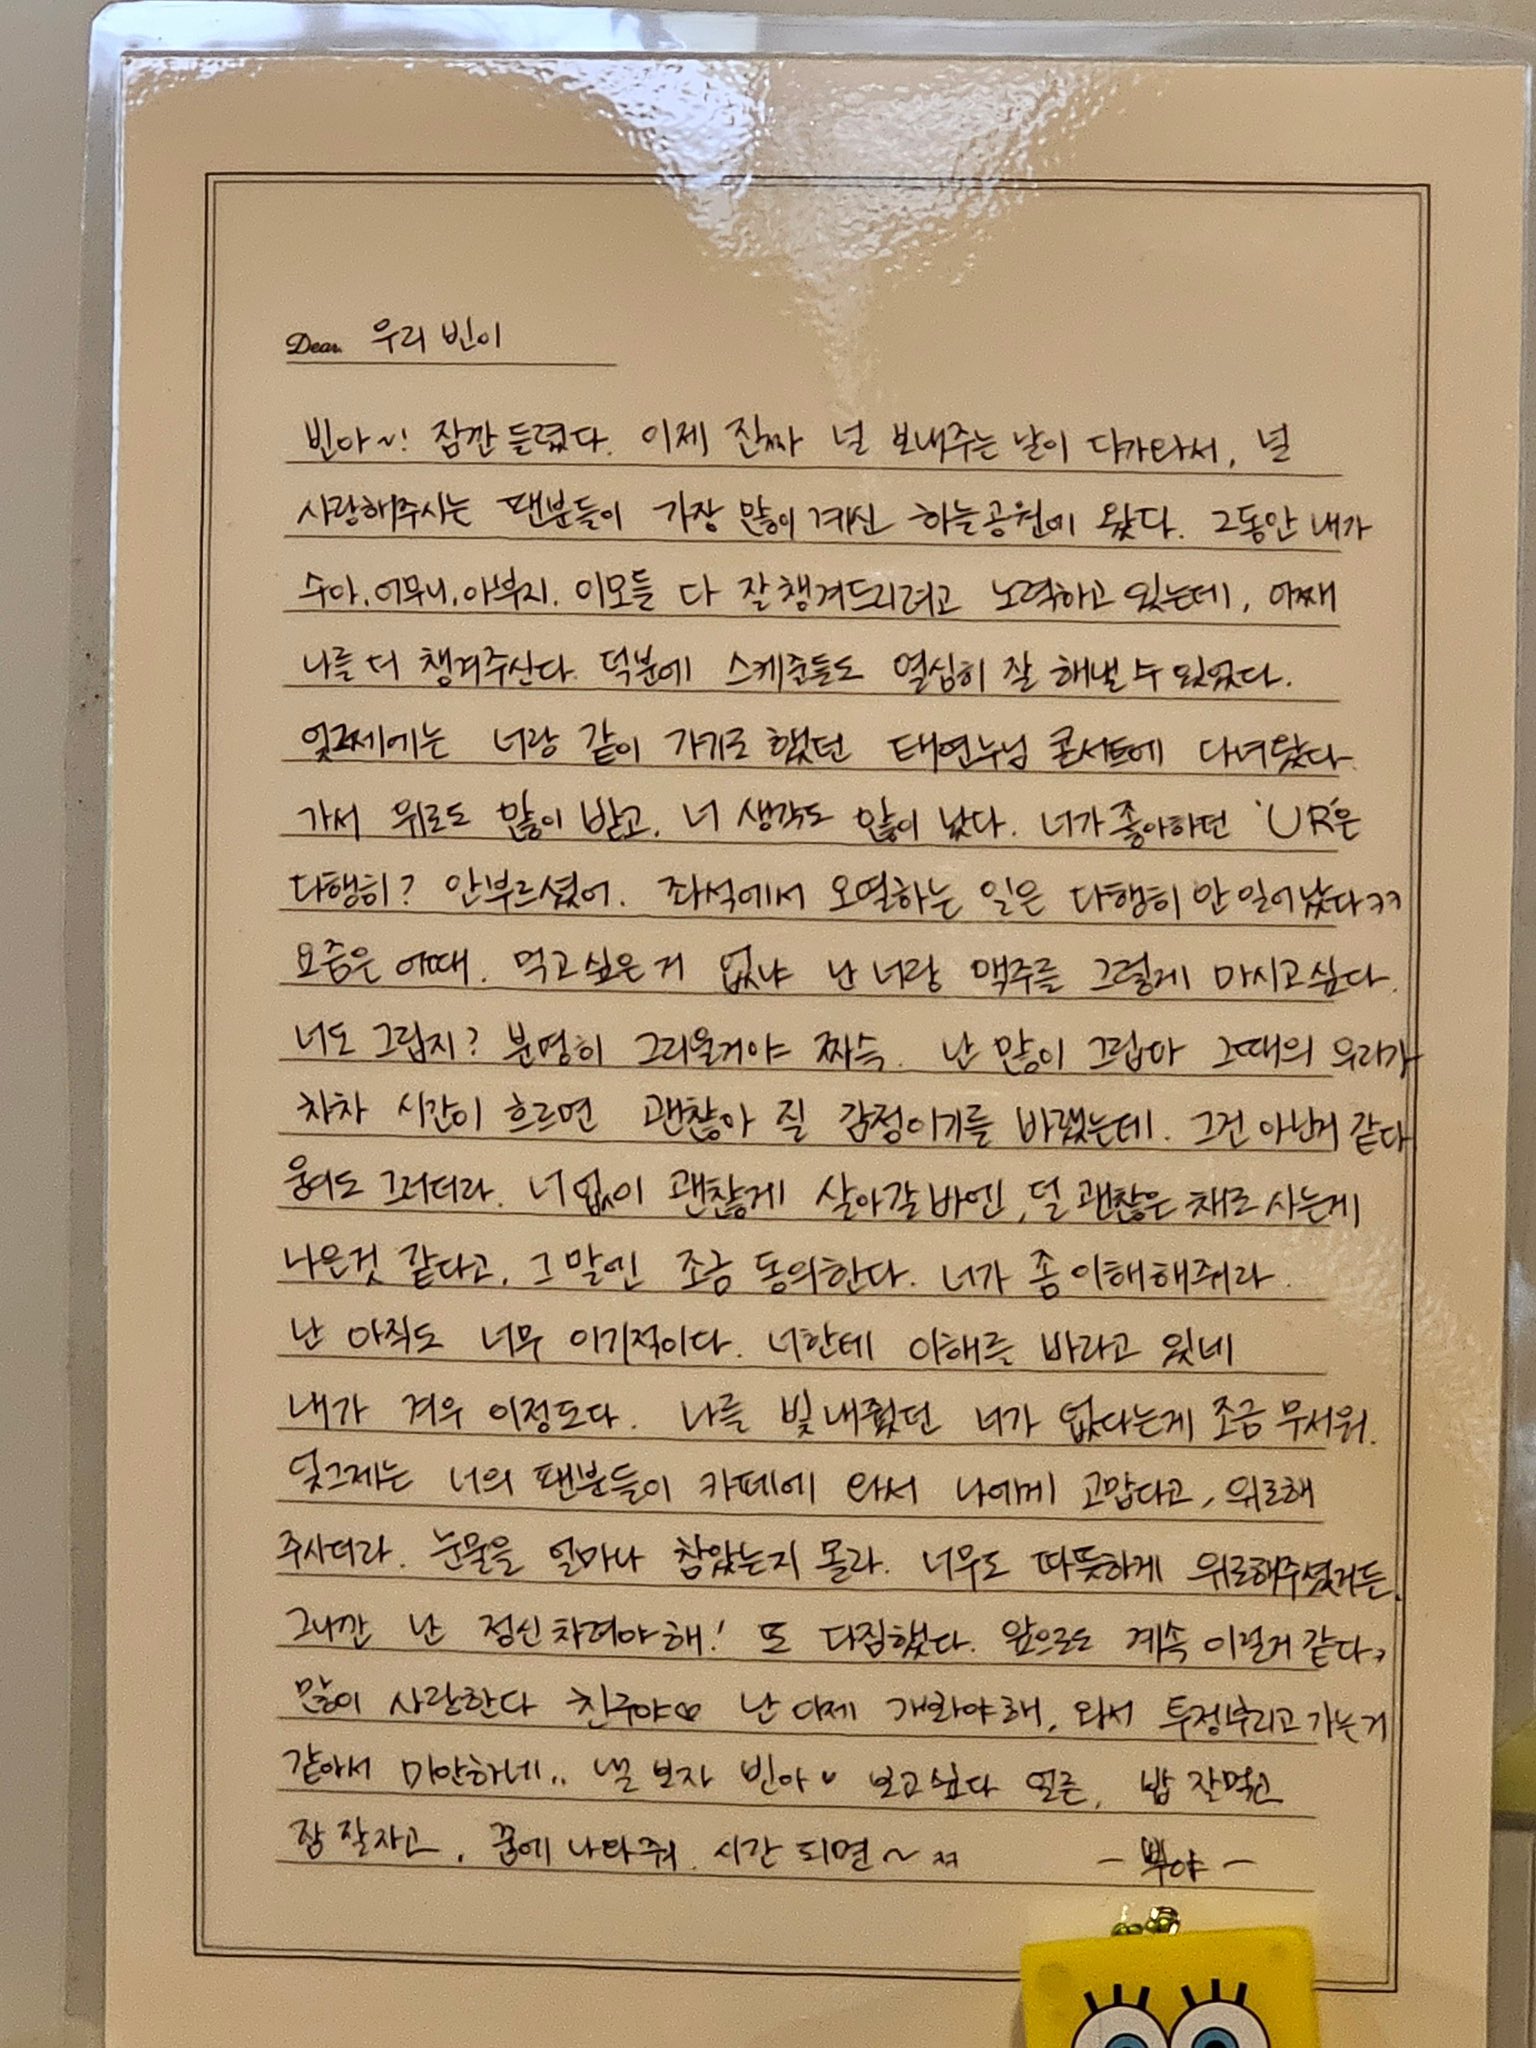 Dear. 우리 빈이
빈아~! 잠깐 들렸다. 이제 진짜 널 보내주는 날이 다가와서, 널
사랑해주시는 팬분들이 가장 많이 계신 하늘공원에 왔다. 그동안 내가
수아, 어무니, 아부지, 이모들 다 잘 챙겨드리려고 노력하고 있는데, 어째
나를 더 챙겨주신다. 덕분에 스케줄들도 열심히 잘 해낼 수 있었다.
엊그제에는 너랑 같이 가기로 했던 태연누님 콘서트에 다녀왔다.
가서 위로도 많이 받고, 너 생각도 많이 났다. 너가 좋아하던 'UR'은
다행히? 안부르셨어. 좌석에서 오열하는 일은 다행히 안 일어났다ㅋㅋ
요즘은 어때. 먹고싶은거 없냐 난 너랑 맥주를 그렇게 마시고싶다.
너도 그립지? 분명히 그리울거야 짜슥. 난 많이 그립다 그때의 우리가
차차 시간이 흐르면 괜찮아 질 감정이기를 바랬는데. 그건 아닌거 같다
웅이도 그러더라. 너없이 괜찮게 살아갈바엔, 덜 괜찮은 채로 사는게
나은것 같다고, 그 말엔 조금 동의한다. 너가 좀 이해해줘라.
난 아직도 너무 이기적이다. 너한테 이해를 바라고 있네
내가 겨우 이정도다. 나를 빛내줬던 너가 없다는게 조금 무서워.
엊그제는 너의 팬분들이 카페에 와서 나에게 고맙다고, 위로해
주시더라. 눈물을 얼마나 참았는지 몰라. 너무도 따뜻하게 위로해주셨거든.
그니깐 난 정신차려야해! 또 다짐했다. 앞으로도 계속 이럴거 같다ㅋ
많이 사랑한다 친구야♡ 난 이제 가봐야해, 와서 투정부리고 가는거
같아서 미안하네.. 낼 보자 빈아 보고싶다 얼른, 밥 잘먹고
잠 잘자고, 꿈에 나타줘. 시간 되면~ ㅋㅋ - 뿌야 -